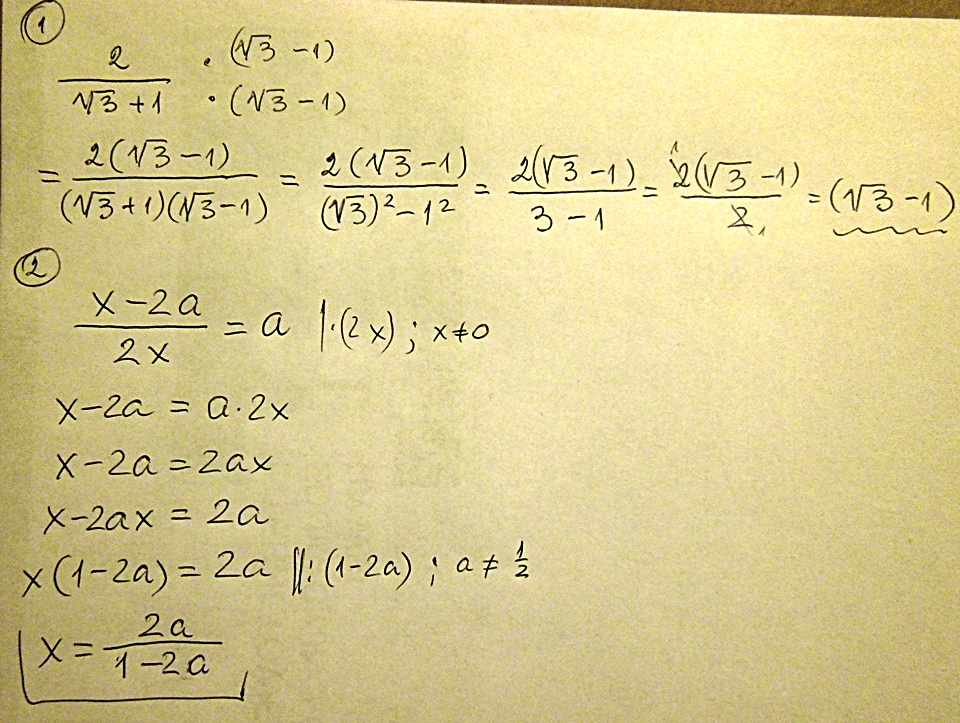 ①
2/(√3+1) · (√3-1)/· (√3-1)
= 2(√3-1)/((√3+1)(√3-1)) = 2(√3-1)/((√3)²-1²) = 2(√3-1)/(3-1) = 2(√3-1)/2 = (√3-1)
②
(x-2a)/(2x) = a |·(2x) ; x≠0
x-2a = a·2x
x-2a = 2ax
x-2ax = 2a
x(1-2a) = 2a ||:(1-2a) ; a ≠ 1/2
x = 2a/(1-2a)